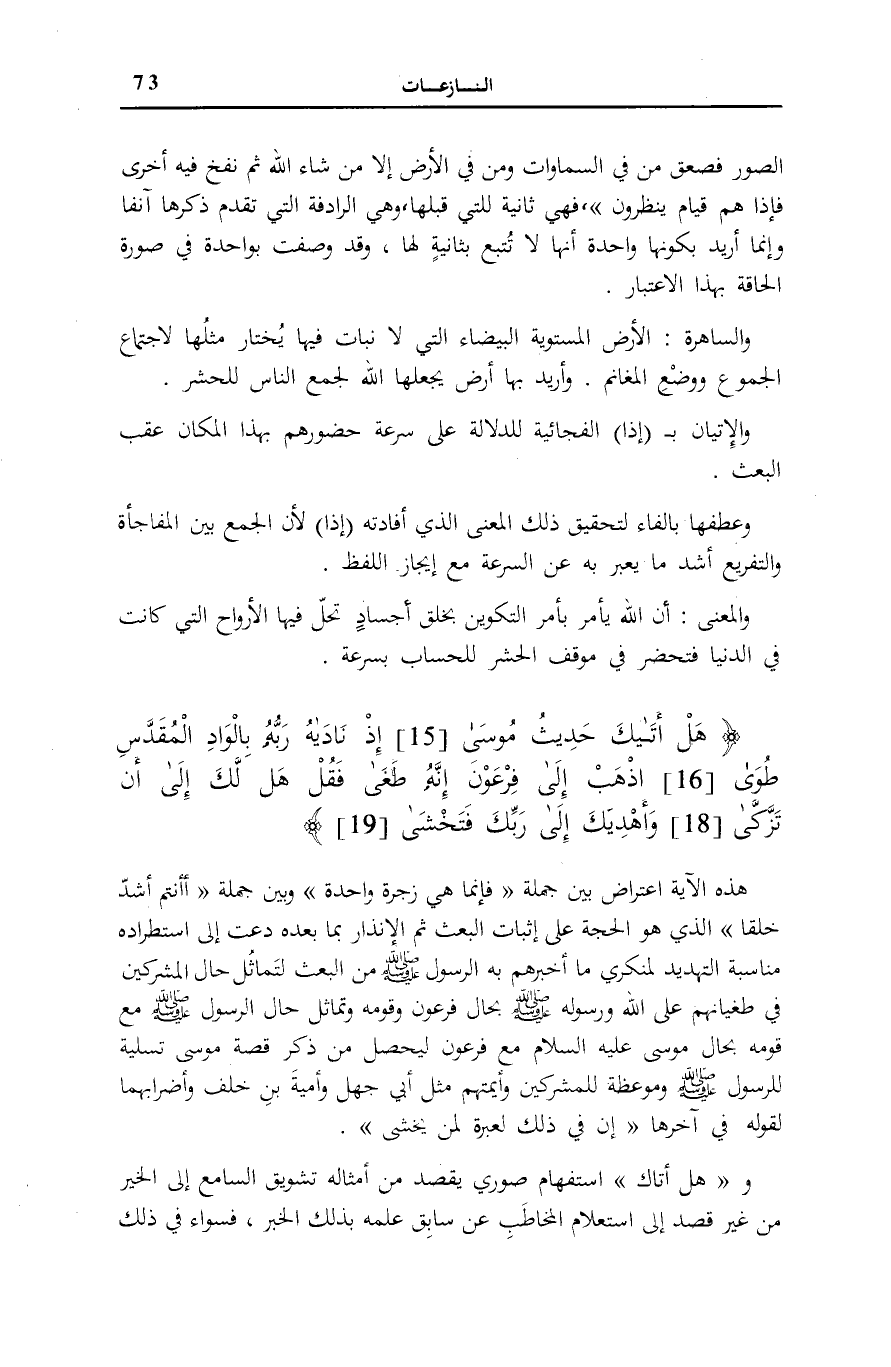 النـــازعـــات 73
الصور فصعق من في السماوات ومن في الأرض إلا من شاء الله ثم نفخ فيه أخرى
فإذا هم قيام ينظرون »،فهي ثانية للتي قبلها،وهي الرادفة التي تقدم ذكرها آنفا
وإنما أريد بكونها واحدة أنها لا تُتبع بثانيةٍ لها ، وقد وصفت بواحدة في صورة
الحاقة بهذا الاعتبار .
والساهرة : الأرض المستوية البيضاء التي لا نبات فيها يُختار مثلُها لاجتماع
الجموع ووضْع المغانم . وأريد بها أرض يجعلها الله لجمع الناس للحشر .
والإتيان بـ (إذا) الفجائية للدلالة على سرعة حضورهم بهذا المكان عقب
البعث .
وعطفها بالفاء لتحقيق ذلك المعنى الذي أفادته (إذا) لأن الجمع بين المفاجأة
والتفريع أشد ما يعبر به عن السرعة مع إيجاز اللفظ .
والمعنى : أن الله يأمر بأمر التكوين بخلق أجسادٍ تحلّ فيها الأرواح التي كانت
في الدنيا فتحضر في موقف الحشر للحساب بسرعة .
﴿ هَلْ أَتَـٰيكَ حَدِيثُ مُوسَىٰ [15] إِذْ نَادَيٰهُ رَبُّهُۥ بِالْوَادِ الْمُقَدَّسِ
طُوَىٰ [16] اذْهَبْ إِلَىٰ فِرْعَوْنَ إِنَّهُۥ طَغَىٰ فَقُلْ هَل لَّكَ إِلَىٰ أَن
تَزَّكَّىٰ [18] وَأَهْدِيَكَ إِلَىٰ رَبِّكَ فَتَخْشَىٰ [19] ﴾
هذه الآية اعتراض بين جملة « فإنما هي زجرة واحدة » وبين جملة « أأنتم أشدّ
خلقا » الذي هو الحجة على إثبات البعث ثم الإنذار بما بعده دعت إلى استطراده
مناسبة التهديد لمنكري ما أخبرهم به الرسول ﷺ من البعث لتَماثُل حال المشركين
في طغيانهم على الله ورسوله ﷺ بحال فرعون وقومه وتماثل حال الرسول ﷺ مع
قومه بحال موسى عليه السلام مع فرعون ليحصل من ذكر قصة موسى تسلية
للرسول ﷺ وموعظة للمشركين وأيمتهم مثل أبي جهل وأميةَ بنِ خلف وأضرابهما
لقوله في آخرها « إن في ذلك لعبرة لمن يخشى » .
و « هل أتاك » استفهام صوري يقصد من أمثاله تشويق السامع إلى الخبر
من غير قصد إلى استعلام المخاطَبِ عن سابق علمه بذلك الخبر ، فسواء في ذلك